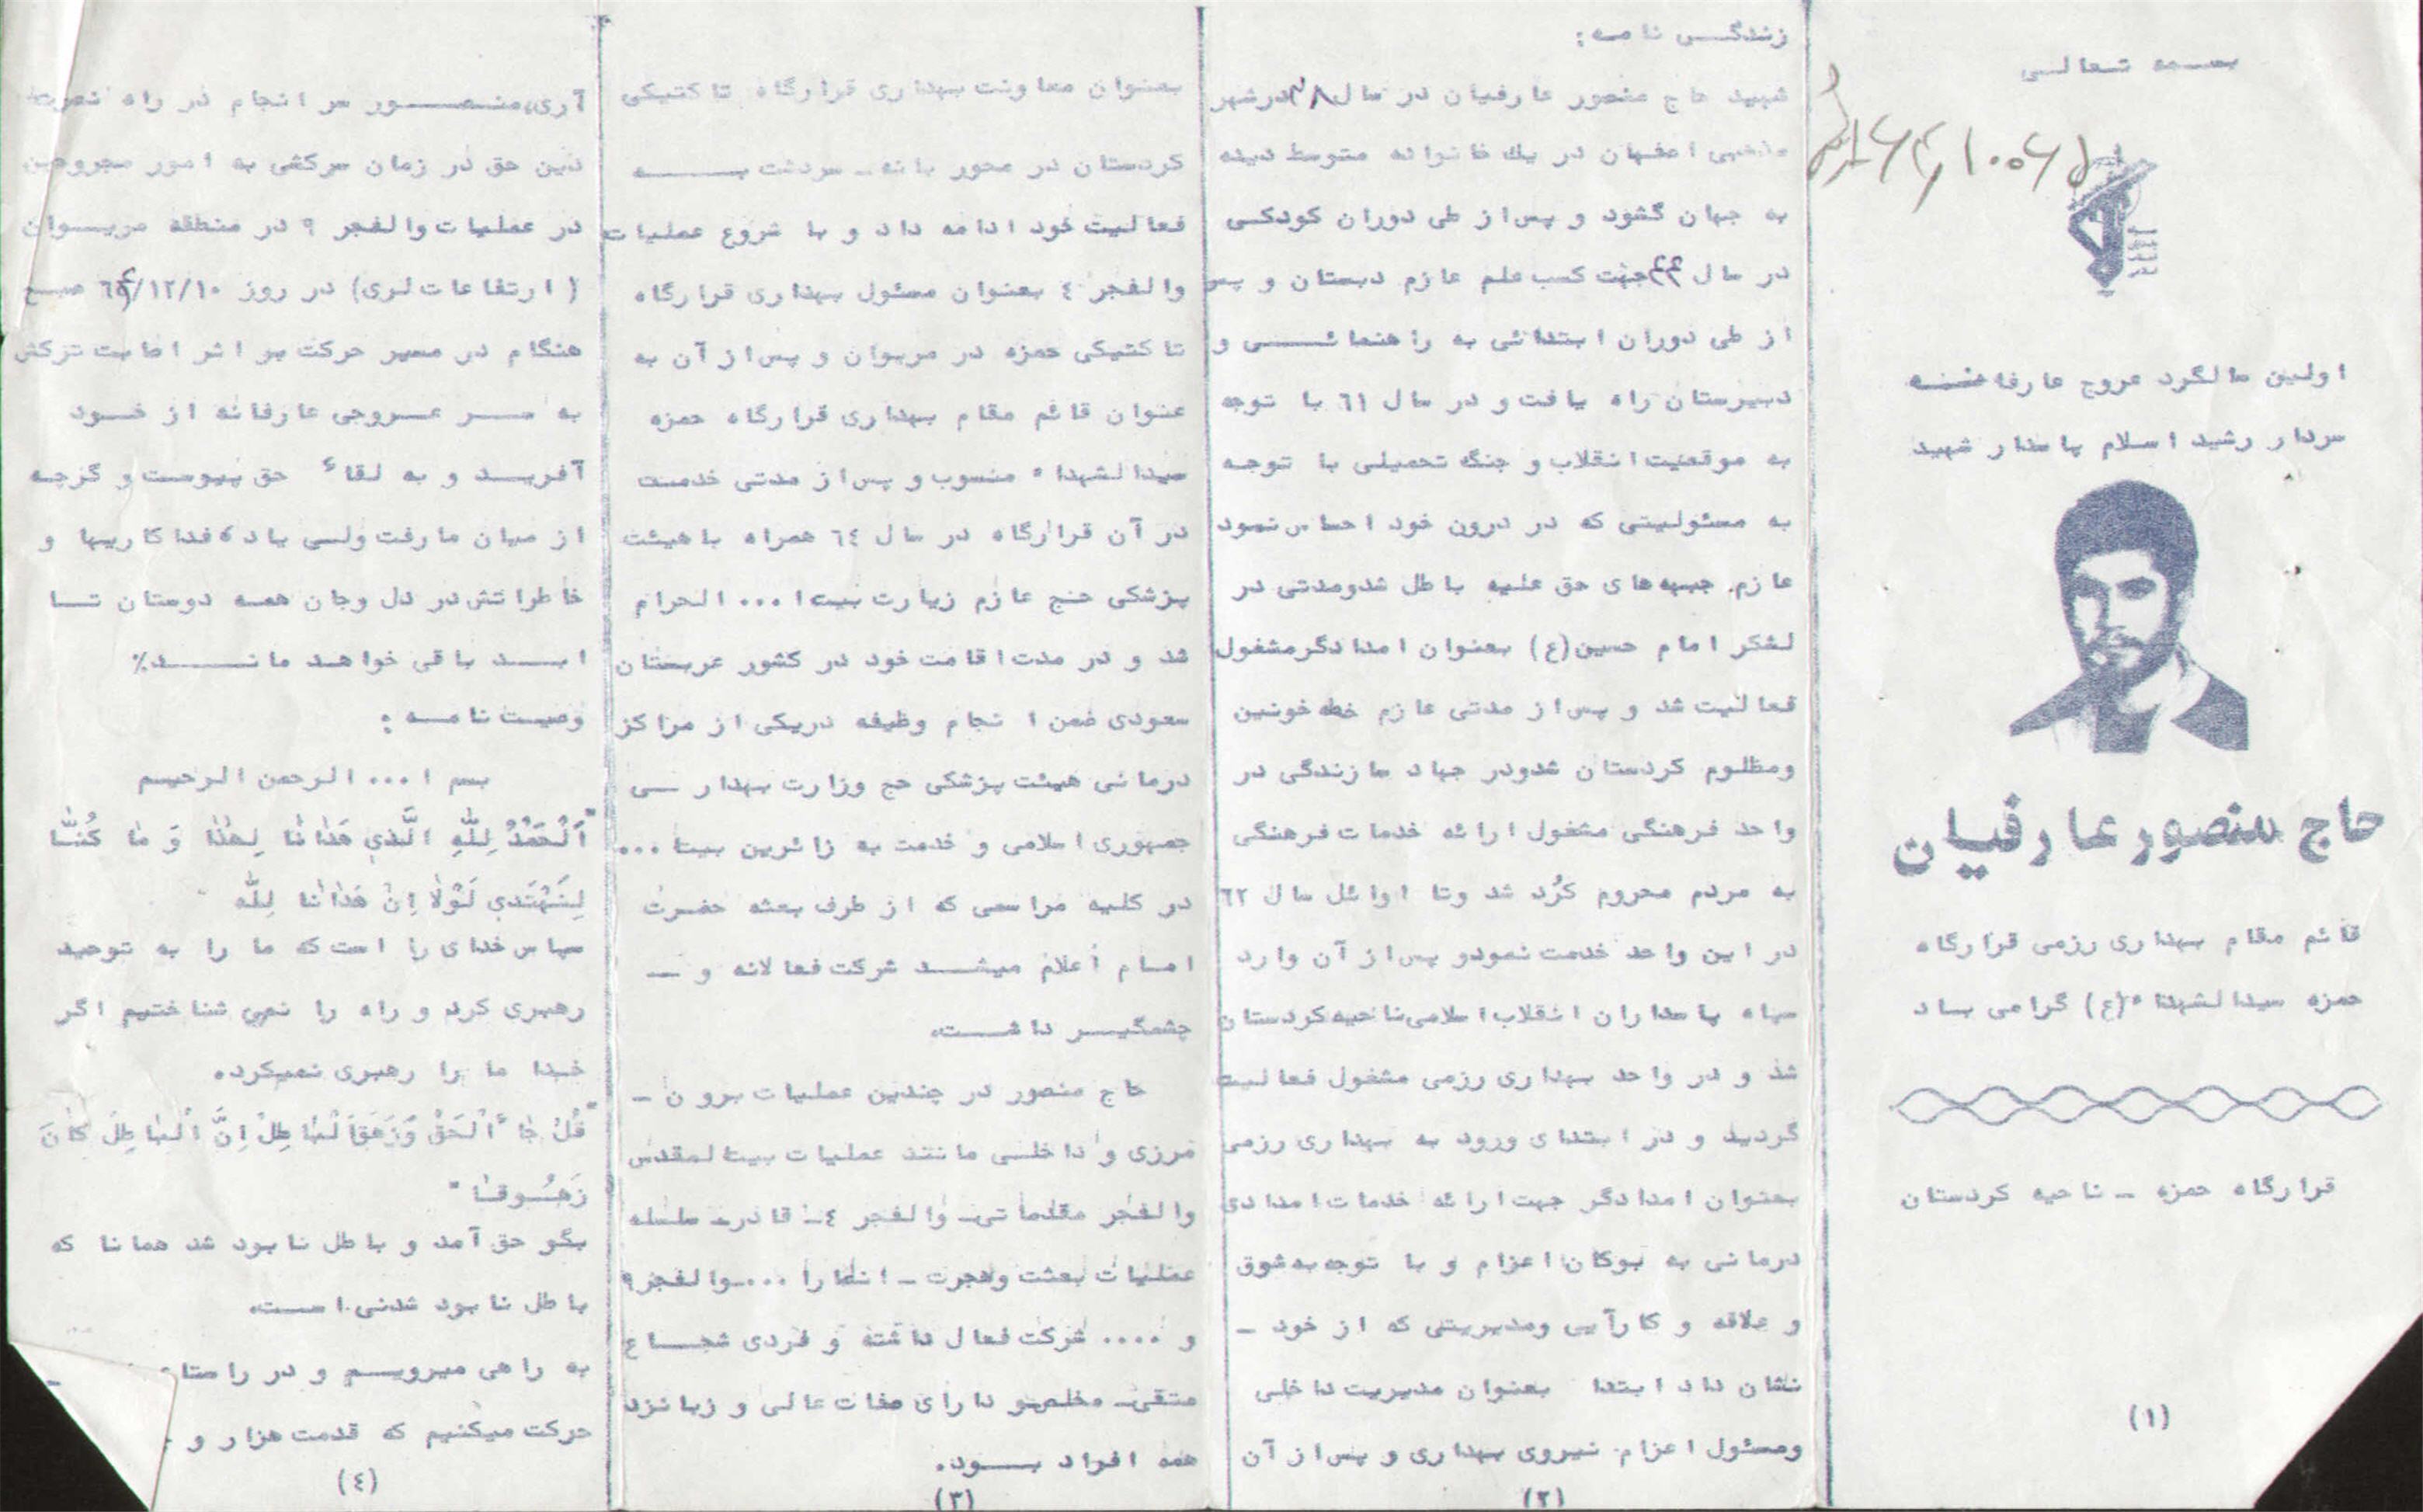 بسمه تعالی
اولین سالگرد عروج عارفانه
سردار رشید اسلام پاسدار شهید
حاج منصور عارفیان
قائم مقام بهداری رزمی قرارگاه
حمزه سیدالشهداء (ع) گرامی باد
قرارگاه حمزه - ناحیه کردستان
(۱)
زندگی نامه :
شهید حاج منصور عارفیان در سال ۳۸ درشهر
مذهبی اصفهان در یك خانواده متوسط دیده
به جهان گشود و پس از طی دوران کودکی
در سال ۴۴ جهت کسب علم عازم دبستان و پس
از طی دوران ابتدائی به راهنمائی و
دبیرستان راه یافت و در سال ٦١ با توجه
به موقعیت انقلاب و جنگ تحمیلی با توجه
به مسئولیتی که در درون خود احساس نمود
عازم جبهه های حق علیه باطل شدومدتی در
لشکر امام حسین(ع) بعنوان امدادگرمشغول
فعالیت شد و پس از مدتی عازم خطه خونین
ومظلوم کردستان شدودر جهاد سازندگی در
واحد فرهنگی مشغول ارائه خدمات فرهنگی
به مردم محروم کُرد شد وتا اوائل سال ٦٢
در این واحد خدمت نمودو پس از آن وارد
سپاه پاسداران انقلاب اسلامی ناحیه کردستان
شد و در واحد بهداری رزمی مشغول فعالیت
گردید و در ابتدای ورود به بهداری رزمی
بعنوان امدادگر جهت ارائه خدمات امدادی
درمانی به بوکان اعزام و با توجه به شوق
و علاقه و کارآیی ومدیریتی که از خود -
نشان داد ابتدا بعنوان مدیریت داخلی
ومسئول اعزام نیروی بهداری و پس از آن
(۲)
بعنوان معاونت بهداری قرارگاه تاکتیکی
کردستان در محور بانه - سردشت به
فعالیت خود ادامه داد و با شروع عملیات
والفجر ٤ بعنوان مسئول بهداری قرارگاه
تاکتیکی حمزه در مریوان و پس از آن به
عنوان قائم مقام بهداری قرارگاه حمزه
سیدالشهداء منسوب و پس از مدتی خدمت
در آن قرارگاه در سال ٦٤ همراه باهیئت
پزشکی حج عازم زیارت بیت ا... الحرام
شد و در مدت اقامت خود در کشور عربستان
سعودی ضمن انجام وظیفه دریکی از مراکز
درمانی هیئت پزشکی حج وزارت بهداری
جمهوری اسلامی و خدمت به زائرین بیت ا...
در کلیه مراسمی که از طرف بعثه حضرت
امام اعلام میشد شرکت فعالانه و -
چشمگیر داشت.
حاج منصور در چندین عملیات برون -
مرزی و داخلی مانند عملیات بیت المقدس
والفجر مقدماتی- والفجر ٤- قادر- سلسله
عملیات بعثت وهجرت - انصارا ...-والفجر ۹
و .... شرکت فعال داشته و فردی شجاع
متقی- مخلص و دارای صفات عالی و زبانزد
همه افراد بود.
(۳)
آری منصور سرانجام در راه نصرت
دین حق در زمان سرکشی به امور مجروحین
در عملیات والفجر ۹ در منطقه مریوان
( ارتفاعات لری) در روز ٦٤/۱۲/۱۰ صبح
هنگام در مسیر حرکت بر اثر اصابت ترکش
به سر عروجی عارفانه از خود
آفرید و به لقاء حق پیوست و گرچه
از میان ما رفت ولی یاد فداکاریها و
خاطراتش در دل وجان همه دوستان تا
ابد باقی خواهد ماند٪
وصیت نامه :
بسم ا... الرحمن الرحیم
"اَلْحَمْدُ لِلّٰهِ الَّذی هَدٰانٰا لِهٰذٰا وَ مٰا کُنّٰا
لِنَهْتَدی لَوْلٰا اِنْ هَدٰانٰا لِلّٰه
سپاس خدای را است که ما را به توحید
رهبری کرد و راه را نمی شناختیم اگر
خدا ما را رهبری نمیکرد.
"قُلْ جٰاءَ الْحَقْ وَزَهَقَ الْبٰاطِلْ اِنَّ الْبٰاطِلَ کٰانَ
زَهُوقٰا "
بگو حق آمد و باطل نابود شد همانا که
باطل نابود شدنی است.
به راهی میرویم و در راستا
حرکت میکنیم که قدمت هزار و
(٤)